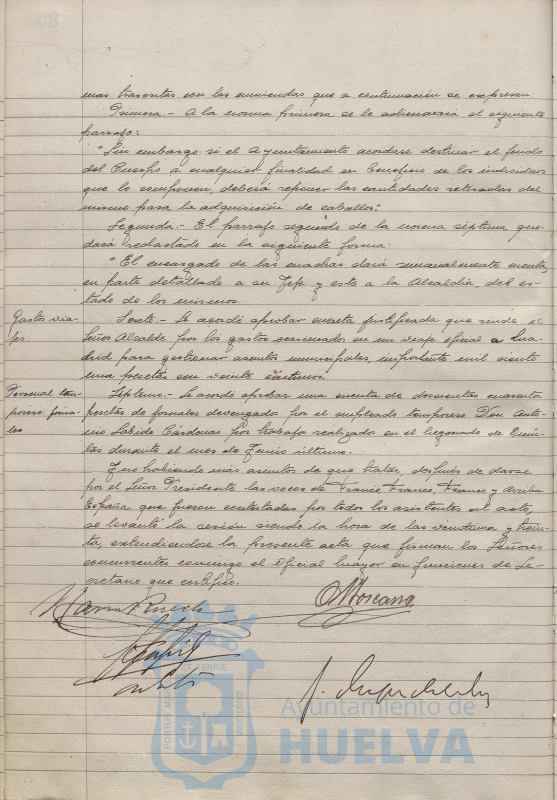 mas trascritas con las enmiendas que a continuación se expresan
Primera.- A la norma primera se le adicionará el siguiente
párrafo:
"Sin embargo si el Ayuntamiento acordase destinar el fondo
del Cuerpo a cualquier finalidad en beneficio de los individuos
que lo componen, deberá reponer las cantidades retiradas del
mismo para la adquisición de caballos".
Segunda.- El párrafo segundo de la norma séptima que-
dará redactado en la siguiente forma:
"El encargado de las cuadras dará semanalmente cuenta,
en parte detallado a su Jefe y este a la Alcaldía, del es-
tado de los mismos.
Gastos via-
jes.
Sexto.- Se acordó aprobar cuenta justificada que rinde el
Señor Alcalde por los gastos ocasionados en un viaje oficial a Ma-
drid para gestionar asuntos municipales, importante mil ciento
una pesetas con veinte céntimos.
Personal tem-
porero jorna-
les
Séptimo.- Se acordó aprobar una cuenta de doscientas cuarenta
pesetas de jornales devengados por el empleado temporero Don Anto-
nio Cárdenas por trabajo realizado en el Negociado de Quin-
tas durante el mes de Junio último.
Y no habiendo más asuntos de que tratar, después de darse
por el Señor Presidente las voces de Franco, Franco, Franco y Arriba
España que fueron contestadas por todos los asistentes al acto,
se levantó la sesión siendo la hora de las veintiuna y trein-
ta, extendiéndose la presente acta que firman los Señores
concurrentes conmigo el Oficial mayor en funciones de Se-
cretario que certifico.
PORTUS MARIS ET TERRAE CUSTODIA
Ayuntamiento de
HUELVA